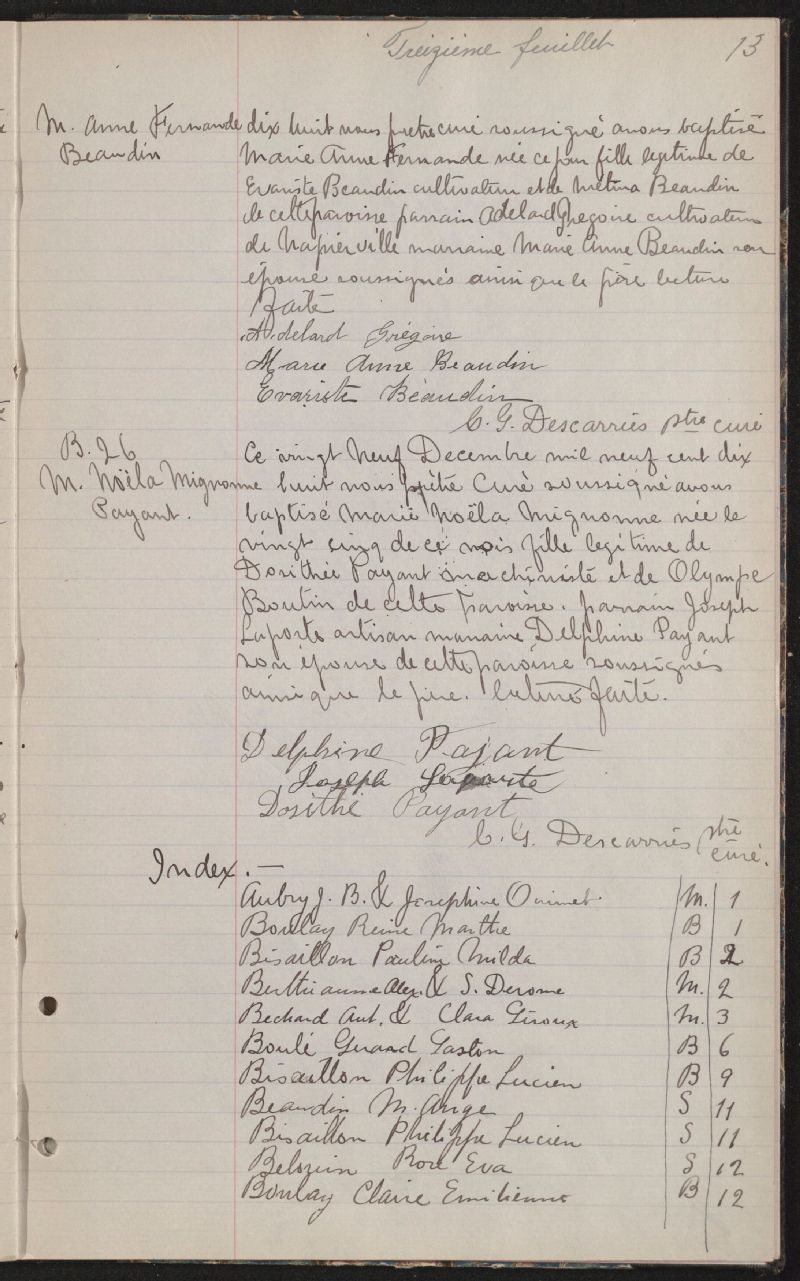 Treizième feuillet 13
M. Anne Fernande dix huit nous pretre curé soussigné avons baptisé
Beaudin Marie Anne Fernande née ce jour fille legitime de
Evariste Beaudin cultivateur et de Melina Beaudin
de cette paroisse parrain Adelard Gregoire cultivateur
de Napierville marraine Marie Anne Beaudin son
épouse soussignés ainsi que le père lecture
faite
Adelard Grégoire
Marie Anne Beaudin
Evariste Béaudin
C. G. Descarries ptre curé
B. 26 Ce vingt neuf Decembre mil neuf cent dix
M. Noëla Mignonne huit nous prètre Curé soussigné avons
Payant. baptisé Marie Noëla Mignonne née le
vingt cinq de ce mois fille legitime de
Dosithée Payant machiniste et de Olympe
Boutin de cette Paroisse. parrain Joseph
Laporte artisan marraine Delphine Payant
son épouse de cette paroisse soussignés
ainsi que le père. lecture faite.
Delphine Pajant
Joseph Laporte
Dosithé Payant
C. G. Descarries ptre
curé.
Index. —
Aubry J. B. & Josephine Ouimet. M. 1
Boulay Reine Marthe B 1
Bisaillon Pauline Milda B 2
Berthiaume Alex. & S. Derome M. 2
Bechard Ant. & Clara Giroux M. 3
Boulé Gerard Gaston B 6
Bisaillon Philippe Lucien B 9
Beaudin M. Ange S 11
Bisaillon Philippe Lucien S 11
Rose Eva S 12
Boulay Claire Emilienne B 12